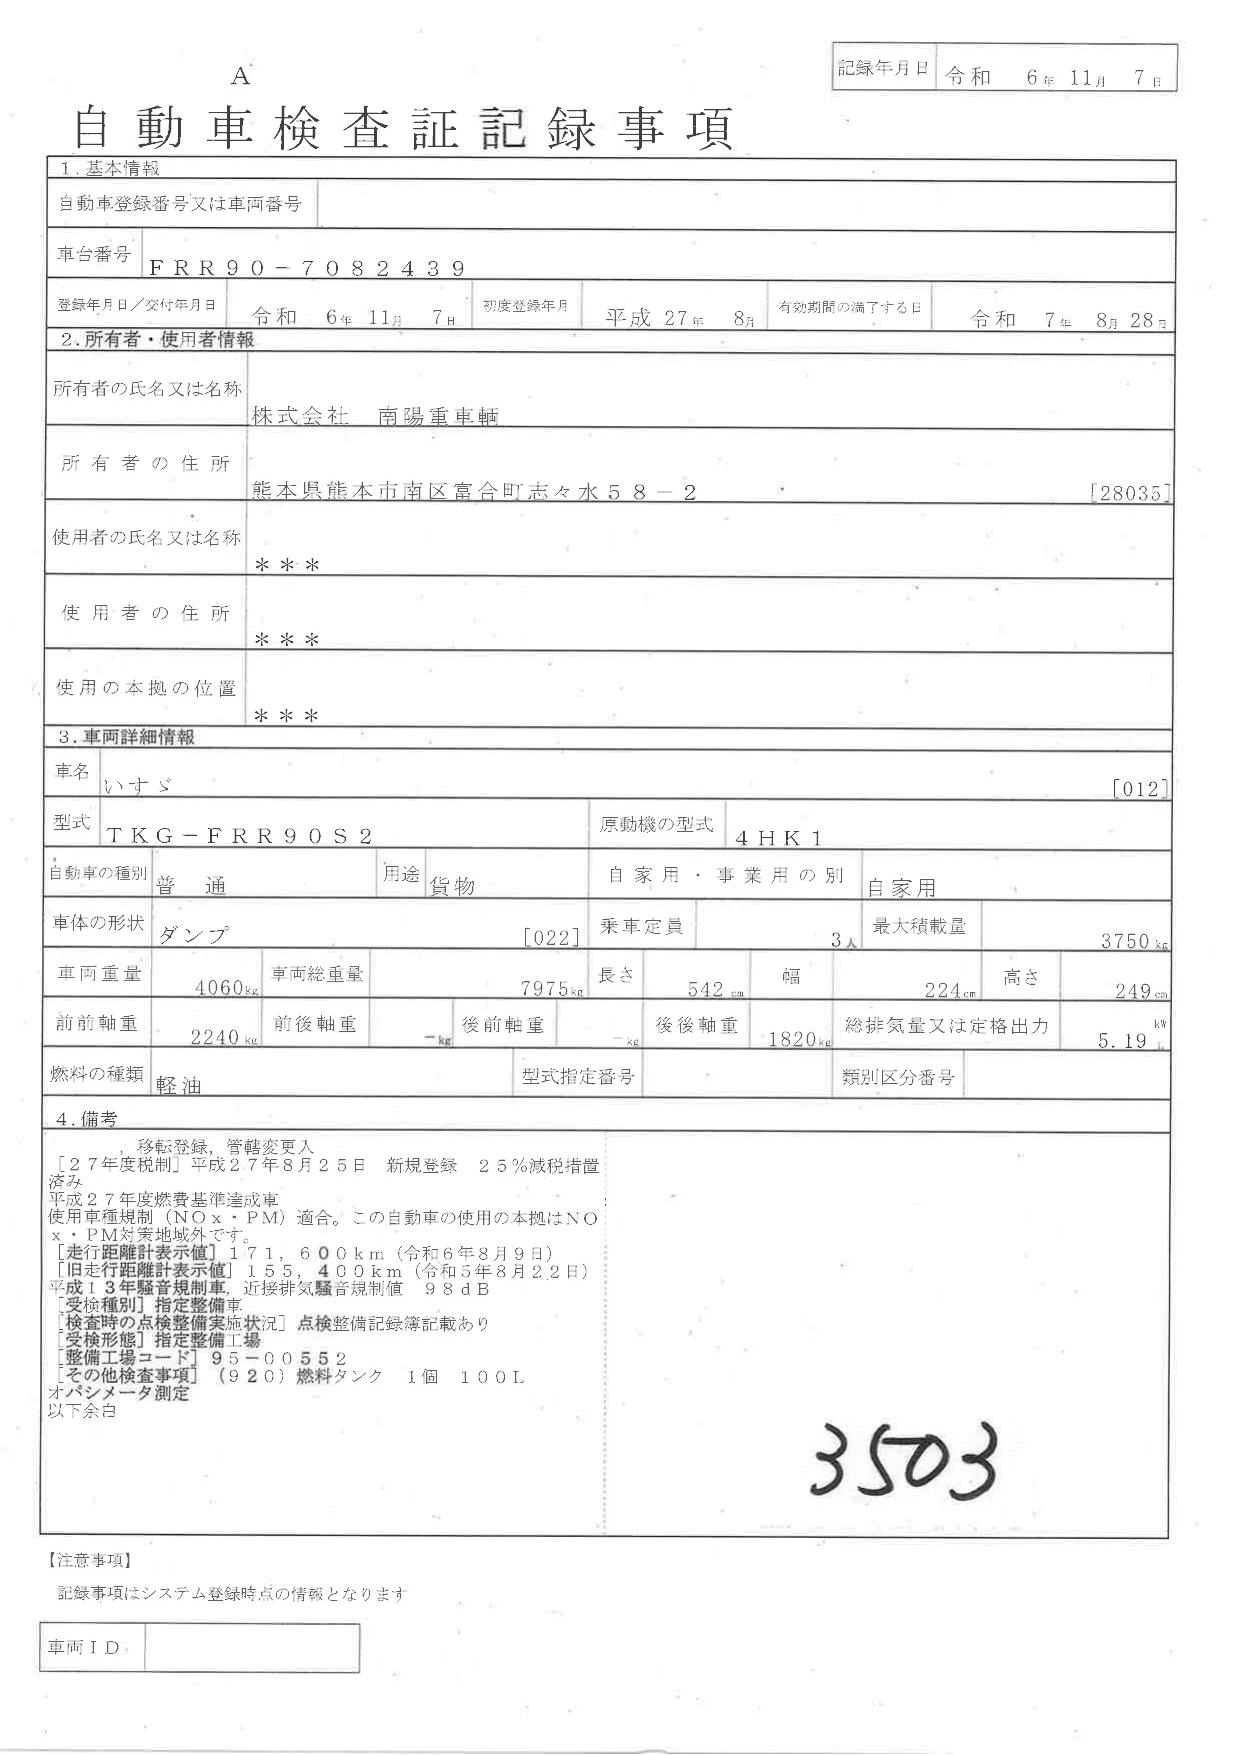 記録年月日 令和 6年 11月 7日
A
自動車検査証記録事項
1.基本情報
自動車登録番号又は車両番号
車台番号 FRR90-7082439
登録年月日/交付年月日 令和 6年 11月 7日 初度登録年月 平成 27年 8月 有効期間の満了する日 令和 7年 8月 28日
2.所有者・使用者情報
所有者の氏名又は名称 株式会社 南陽重車輌
所有者の住所 熊本県熊本市南区富合町志々水58-2 [28035]
使用者の氏名又は名称 ***
使用者の住所 ***
使用の本拠の位置 ***
3.車両詳細情報
車名 いすゞ [012]
型式 TKG-FRR90S2 原動機の型式 4HK1
自動車の種別 普 通 用途 貨物 自家用・事業用の別 自家用
車体の形状 ダンプ [022] 乗車定員 3人 最大積載量 3750kg
車両重量 4060kg 車両総重量 7975kg 長さ 542cm 幅 224cm 高さ 249cm
前前軸重 2240kg 前後軸重 -kg 後前軸重 -kg 後後軸重 1820kg 総排気量又は定格出力 5.19 kW L
燃料の種類 軽油 型式指定番号 類別区分番号
4.備考
,移転登録,管轄変更入
[27年度税制]平成27年8月25日 新規登録 25%減税措置
済み
平成27年度燃費基準達成車
使用車種規制(NOx・PM)適合。この自動車の使用の本拠はNO
x・PM対策地域外です。
[走行距離計表示値]171,600km(令和6年8月9日)
[旧走行距離計表示値]155,400km(令和5年8月22日)
平成13年騒音規制車,近接排気騒音規制値 98dB
[受検種別]指定整備車
[検査時の点検整備実施状況]点検整備記録簿記載あり
[受検形態]指定整備工場
[整備工場コード]95-00552
[その他検査事項](920)燃料タンク 1個 100L
オパシメータ測定
以下余白
3503
【注意事項】
記録事項はシステム登録時点の情報となります
車両ID